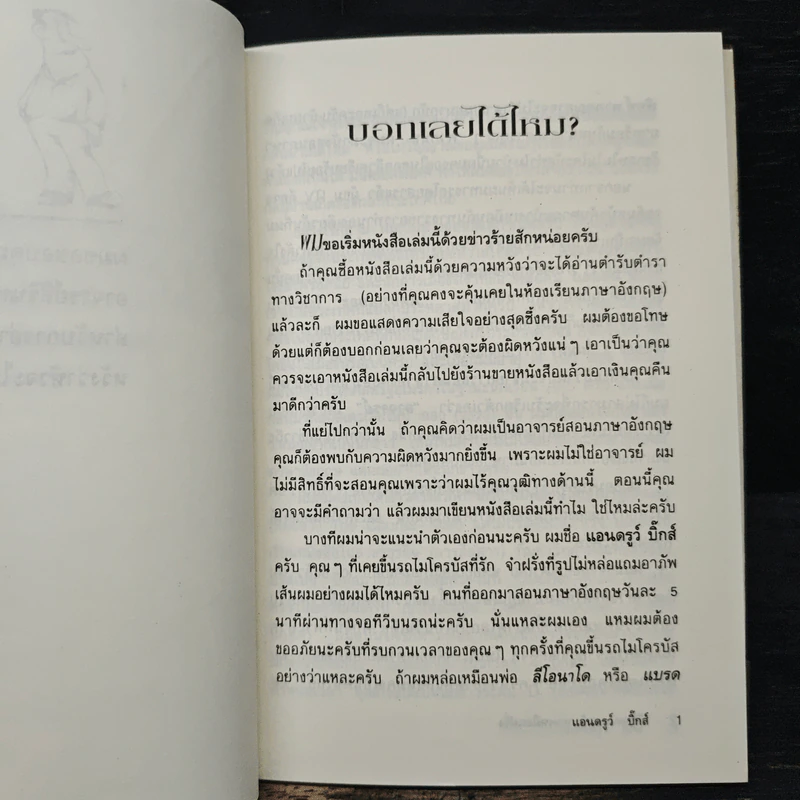 บอกเลยได้ไหม?
ผมขอเริ่มหนังสือเล่มนี้ด้วยข่าวร้ายสักหน่อยครับ
ถ้าคุณซื้อหนังสือเล่มนี้ด้วยความหวังว่าจะได้อ่านตำรับตำรา
ทางวิชาการ (อย่างที่คุณคงจะคุ้นเคยในห้องเรียนภาษาอังกฤษ)
แล้วละก็ ผมขอแสดงความเสียใจอย่างสุดซึ้งครับ ผมต้องขอโทษ
ด้วยแต่ก็ต้องบอกก่อนเลยว่าคุณจะต้องผิดหวังแน่ๆ เอาเป็นว่าคุณ
ควรจะเอาหนังสือเล่มนี้กลับไปยังร้านขายหนังสือแล้วเอาเงินคุณคืน
มาดีกว่าครับ
ที่แย่ไปกว่านั้น ถ้าคุณคิดว่าผมเป็นอาจารย์สอนภาษาอังกฤษ
คุณก็ต้องพบกับความผิดหวังมากยิ่งขึ้น เพราะผมไม่ใช่อาจารย์ ผม
ไม่มีสิทธิ์ที่จะสอนคุณเพราะว่าผมไร้คุณวุฒิทางด้านนี้ ตอนนี้คุณ
อาจจะมีคำถามว่า แล้วผมมาเขียนหนังสือเล่มนี้ทำไม ใช่ไหมล่ะครับ
บางทีผมน่าจะแนะนำตัวเองก่อนนะครับ ผมชื่อ แอนดรูว์ บิ๊กส์
ครับ คุณๆ ที่เคยขึ้นรถไมโครบัสที่รัก จำฝรั่งที่รูปไม่หล่อแถมอาภัพ
เส้นผมอย่างผมได้ไหมครับ คนที่ออกมาสอนภาษาอังกฤษวันละ 5
นาทีผ่านทางจอทีวีบนรถน่ะครับ นั่นแหละผมเอง แหมผมต้อง
ขออภัยนะครับที่รบกวนเวลาของคุณๆ ทุกครั้งที่คุณขึ้นรถไมโครบัส
อย่างว่าแหละครับ ถ้าผมหล่อเหมือนพ่อ ลีโอนาโด หรือ แบรด
แอนดรูว์ บิ๊กส์ 1